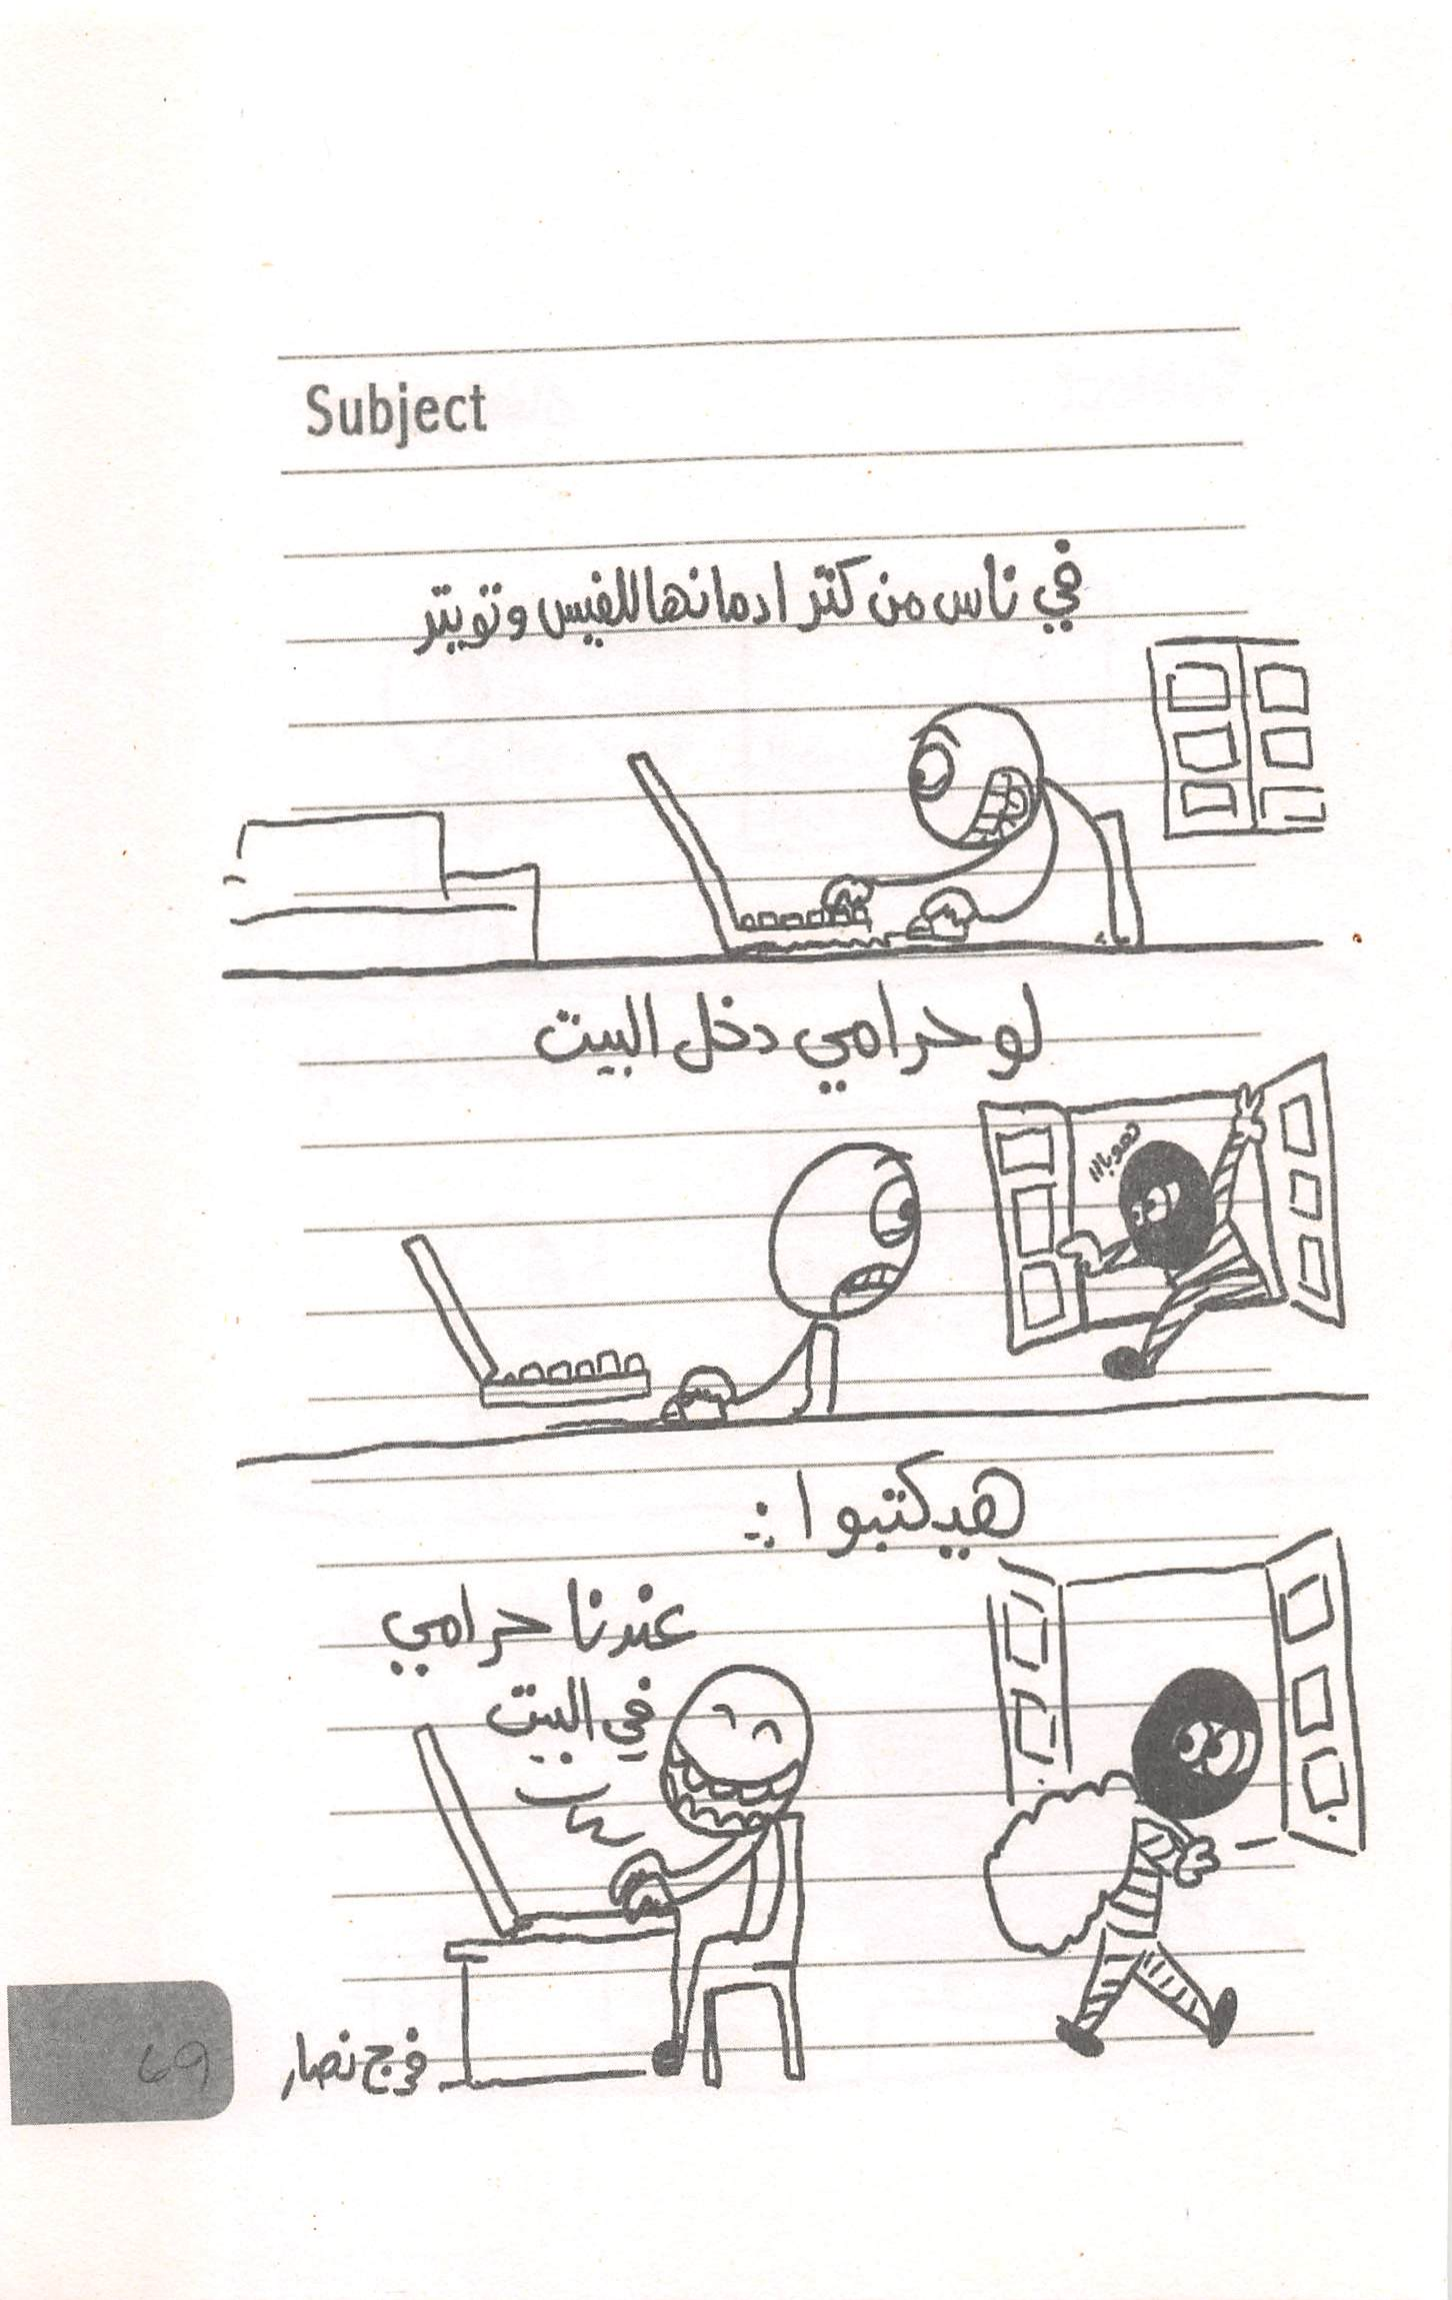 Subject
في ناس من كتر ادمانها للفيس وتويتر
لو حرامي دخل البيت
هوبااا
هيكتبوا :
عندنا حرامي
في البيت
فرج نصار
69